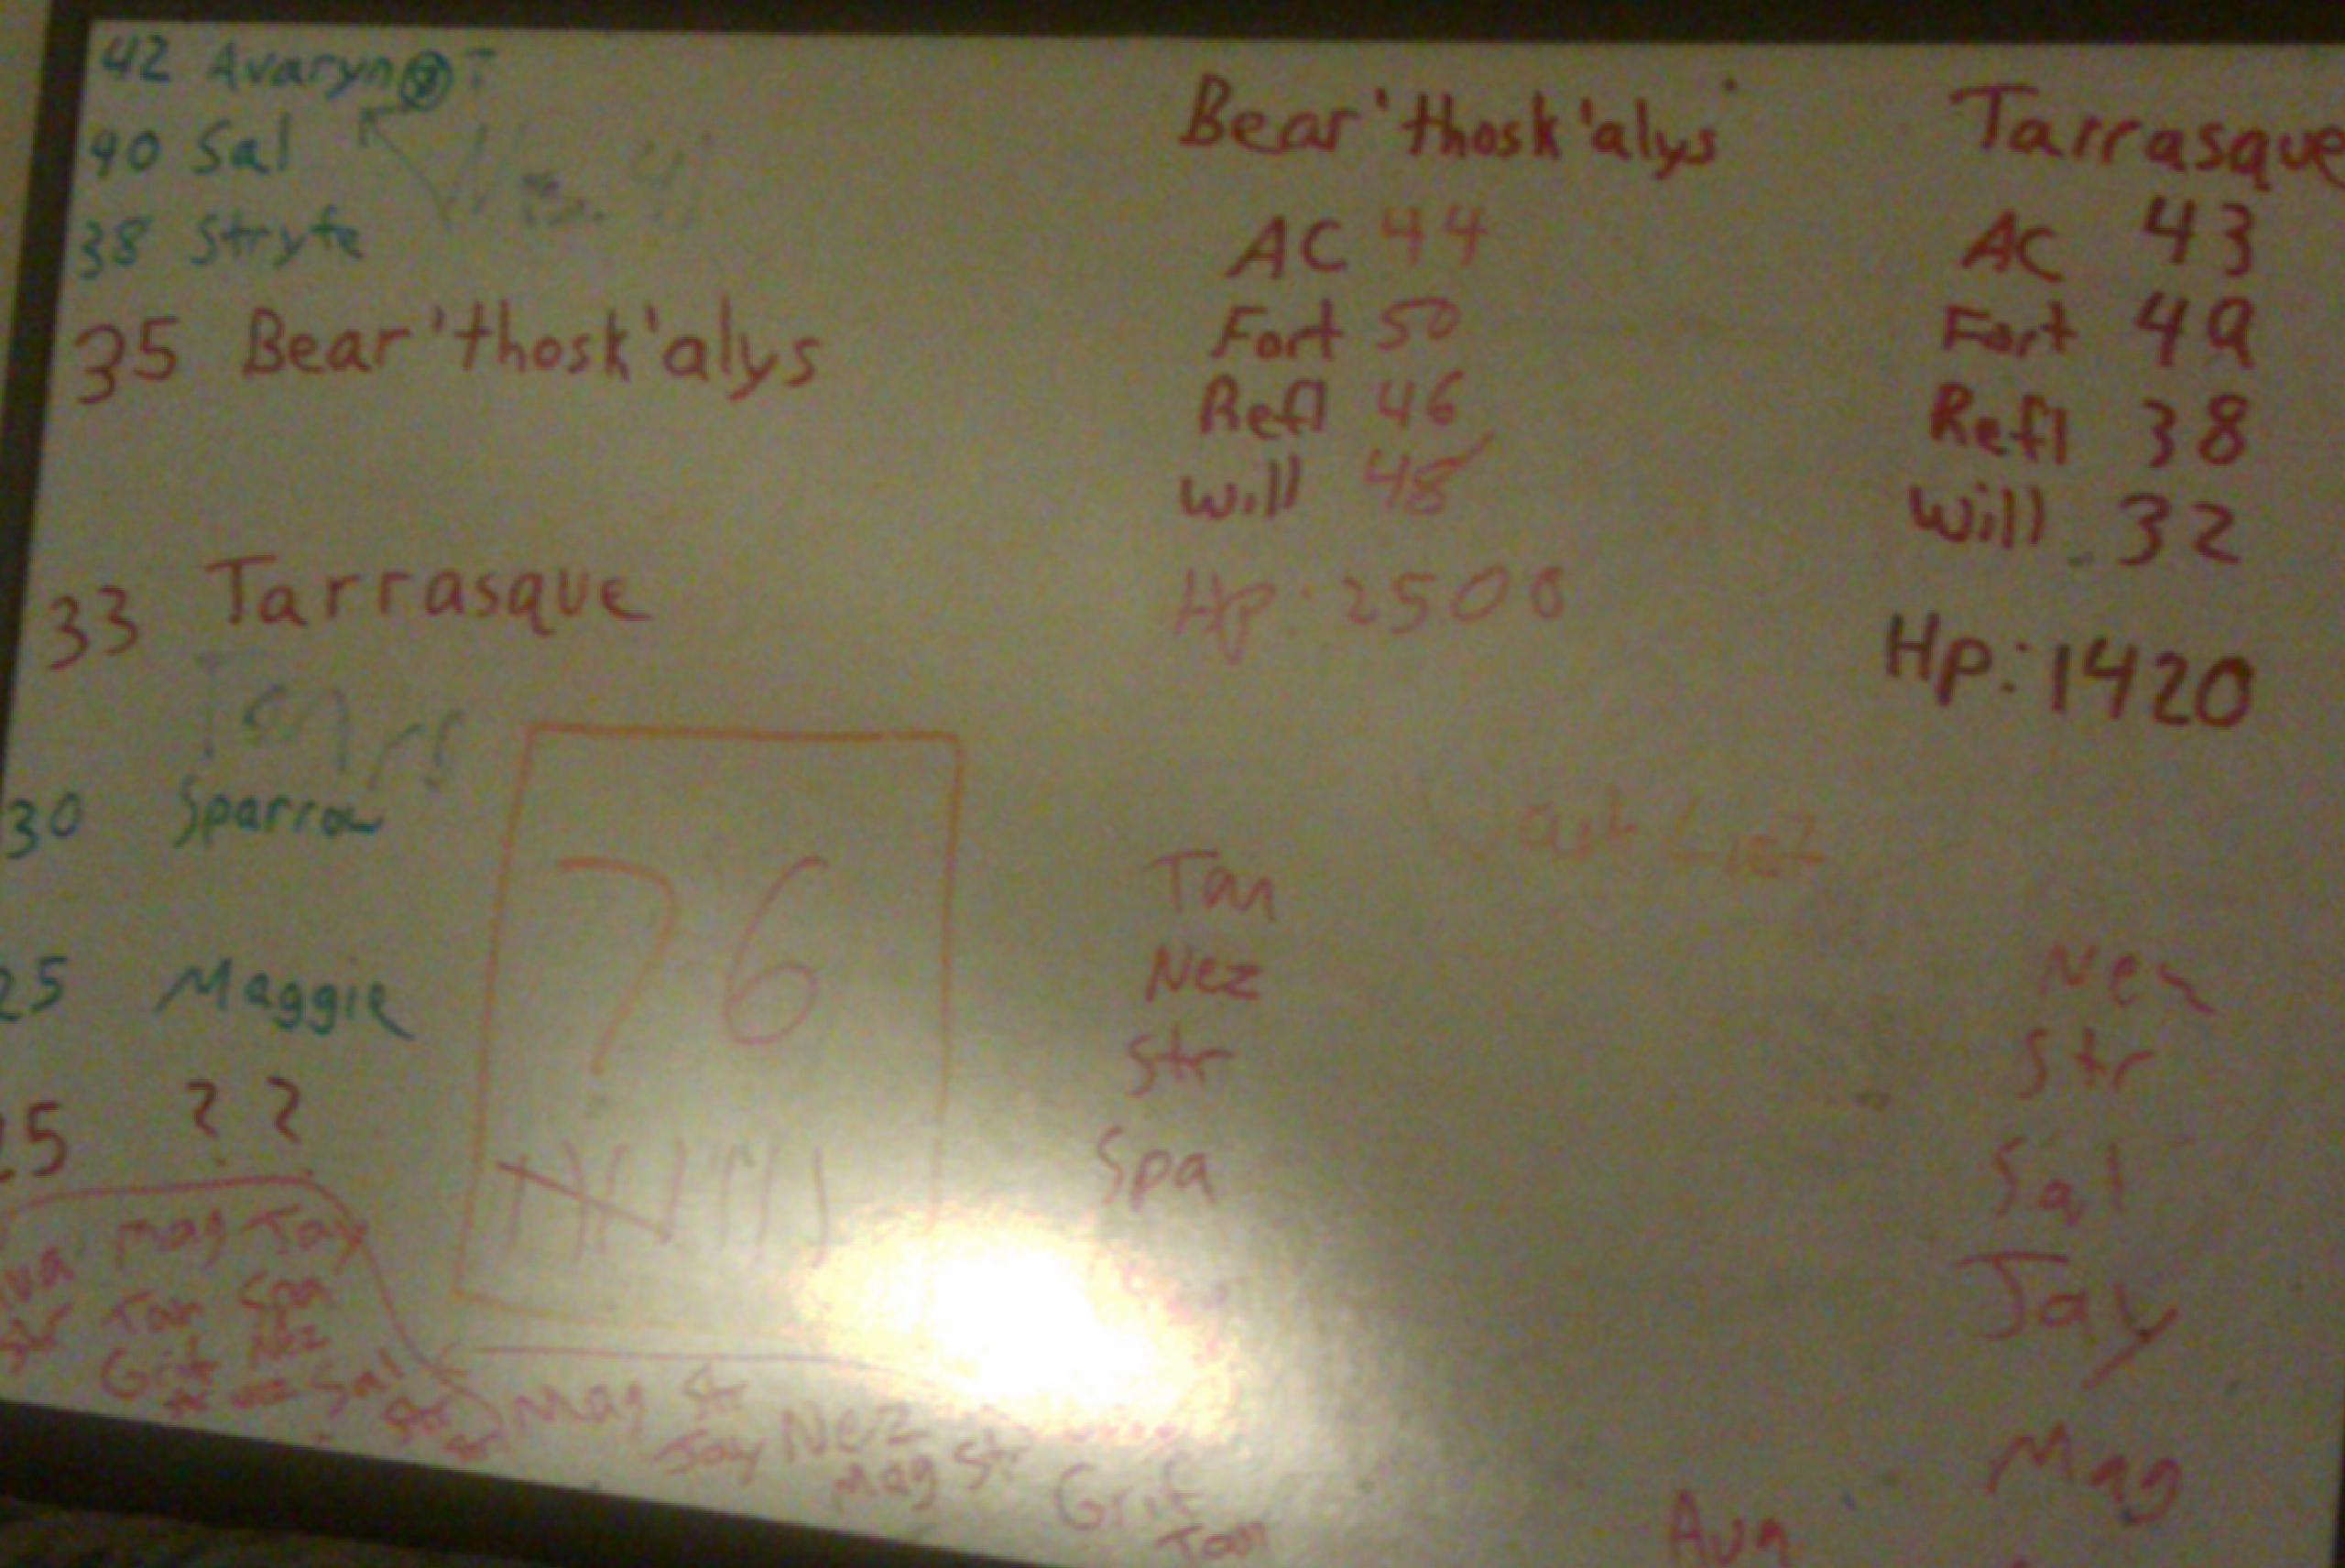 42 Avaryn
40 Sal
38 Stryfe
35 Bear'thosk'alys
33 Tarrasque
30 Sparrow
25 Maggie
25 ??
76
Bear'thosk'alys
AC 44
Fort 50
Refl 46
Will 48
Hp: 2500
Tan
Nez
Str
Spa
Tarrasque
AC 43
Fort 49
Refl 38
Will 32
Hp: 1420
Nez
Str
Sal
Jay
Mag
Ava
Mag Jay
Tan Spa
Grit Nez
Sal
Mag Str
Jay Nez
Mag Str
Grit
Tan